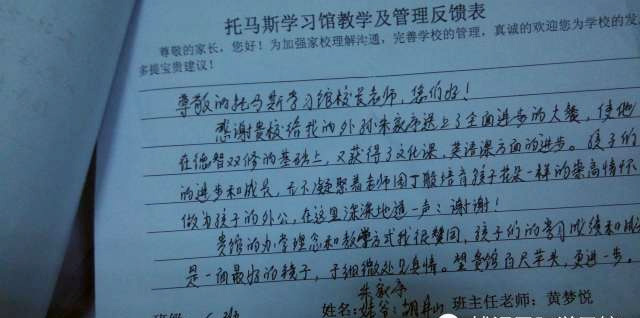 托马斯学习馆教学及管理反馈表
尊敬的家长，您好！为加强家校理解沟通，完善学校的管理，真诚的欢迎您为学校的发
多提宝贵建议！
尊敬的托马斯学习馆校长老师，您们好！
感谢贵校给我的外孙朱家序送上了全面进步的大餐，使他
在德智双修的基础上，又获得了文化课，英语课方面的进步。孩子的
的进步和成长，无不凝聚着老师园丁般培育孩子花朵一样的崇高情怀
做为孩子的外公，在这里深深地道一声：谢谢！
贵馆的办学理念和教学方式我很赞同，孩子们的学习成绩和成
是一面最好的镜子，于细微处见真情。望贵馆百尺竿头，更进一步，
朱家序
姓名：姥爷： 班主任老师：黄梦悦